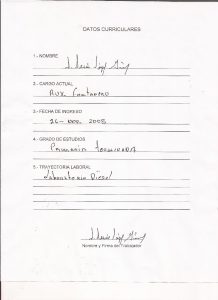 DATOS CURRICULARES
1.- NOMBRE
2.- CARGO ACTUAL
Aux. Fontanero
3.- FECHA DE INGRESO
2008
4.- GRADO DE ESTUDIOS
Primaria Terminada
5.- TRAYECTORIA LABORAL
Laboratorio Diesel
Nombre y Firma del Trabajador